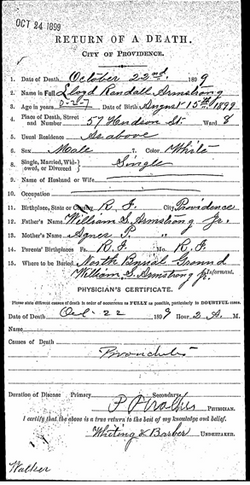 OCT 24 1899
RETURN OF A DEATH.
CITY OF PROVIDENCE.
1. Date of Death, October 22nd, 1899
2. Name in Full Lloyd Randall Armstrong
3. Age in years 0-2-7 Date of Birth August 15th 1899
4. Place of Death, Street and Number 57 Hudson St Ward 8
5. Usual Residence As above
6. Sex, Male 7. Color White
8. Single, Married, Widowed, or Divorced Single
9. Name of Husband or Wife
10. Occupation
11. Birthplace, State R. I. City Providence
12. Father's Name William S. Armstrong Jr.
13. Mother's Name Agnes P. "
14. Parents' Birthplaces Fa. R. I. Mo. R. I.
15. Where to be Buried North Burial Ground
William S. Armstrong Jr. Informant.
PHYSICIAN'S CERTIFICATE.
Please state different causes of death in order of occurrence as FULLY as possible, particularly in DOUBTFUL cases.
Date of Death Oct 22 1899 Hour 2 A. M.
Name
Causes of Death
Bronchitis
Duration of Disease Primary Secondary
PHYSICIAN.
I certify that the above is a true return to the best of my knowledge and belief.
Whiting & Barber UNDERTAKER.
Walker